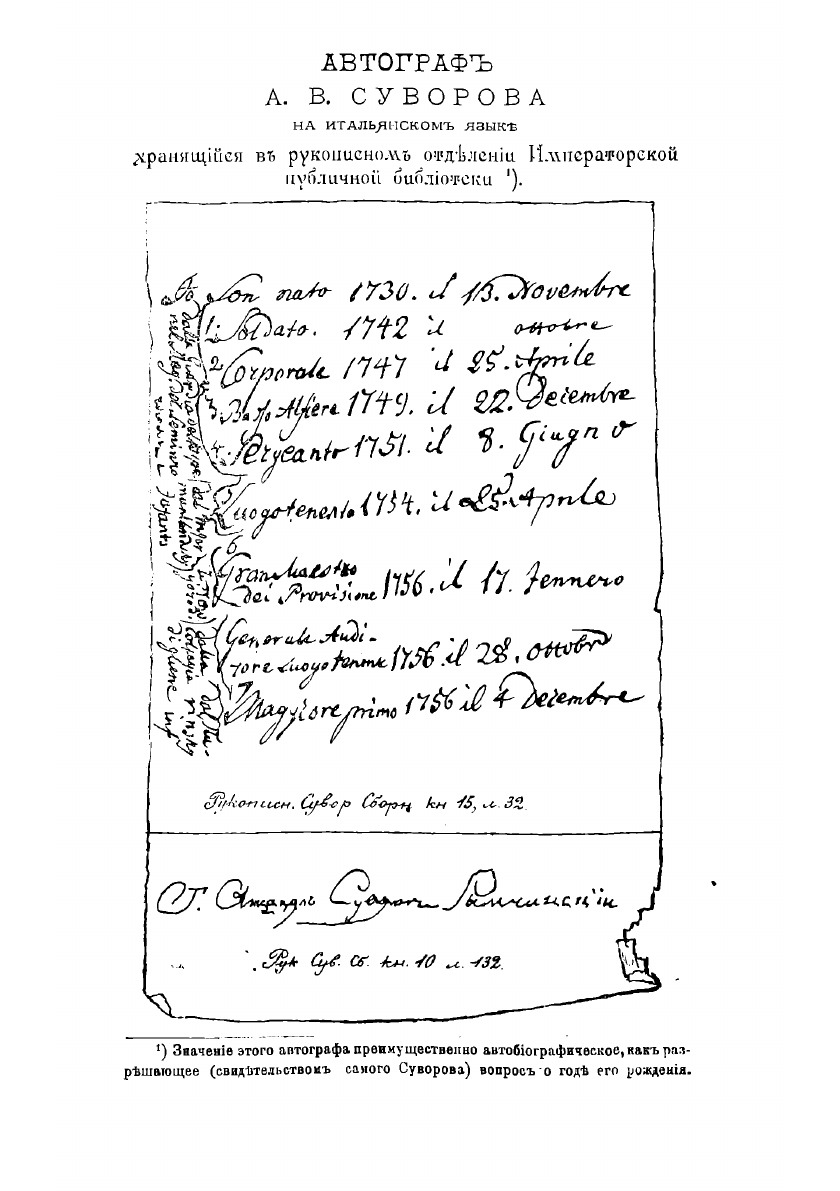 АВТОГРАФЪ
А. В. СУВОРОВА
НА ИТАЛЬЯНСКОМЪ ЯЗЫКѢ
хранящійся въ рукописномъ отдѣленіи Императорской
публичной библіотеки ¹).
Io Son nato 1730. il 13. Novembre
1. Soldato. 1742 il ottobre
2 Corporale 1747 il 25. Aprile
3. Basso Alfiere 1749. il 22. Decembre
4. Sergeante 1751. il 8. Giugno
5 Luogotenente 1754. il 25. Aprile
6
Gran Maestro
dei Provisione 1756. il 17. Jennero
Generale Audi-
tore Luogotenente 1756. il 28. ottobre
7 Maggiore primo 1756 il 4 Decembre
Рукописн. Сувор Сборн кн 15, л. 32
Г. А. Суворовъ Рымникскій
Рук Сув. Сб. кн. 10 л. 132.
¹) Значеніе этого автографа преимущественно автобіографическое, какъ раз-
рѣшающее (свидѣтельствомъ самого Суворова) вопросъ о годѣ его рожденія.